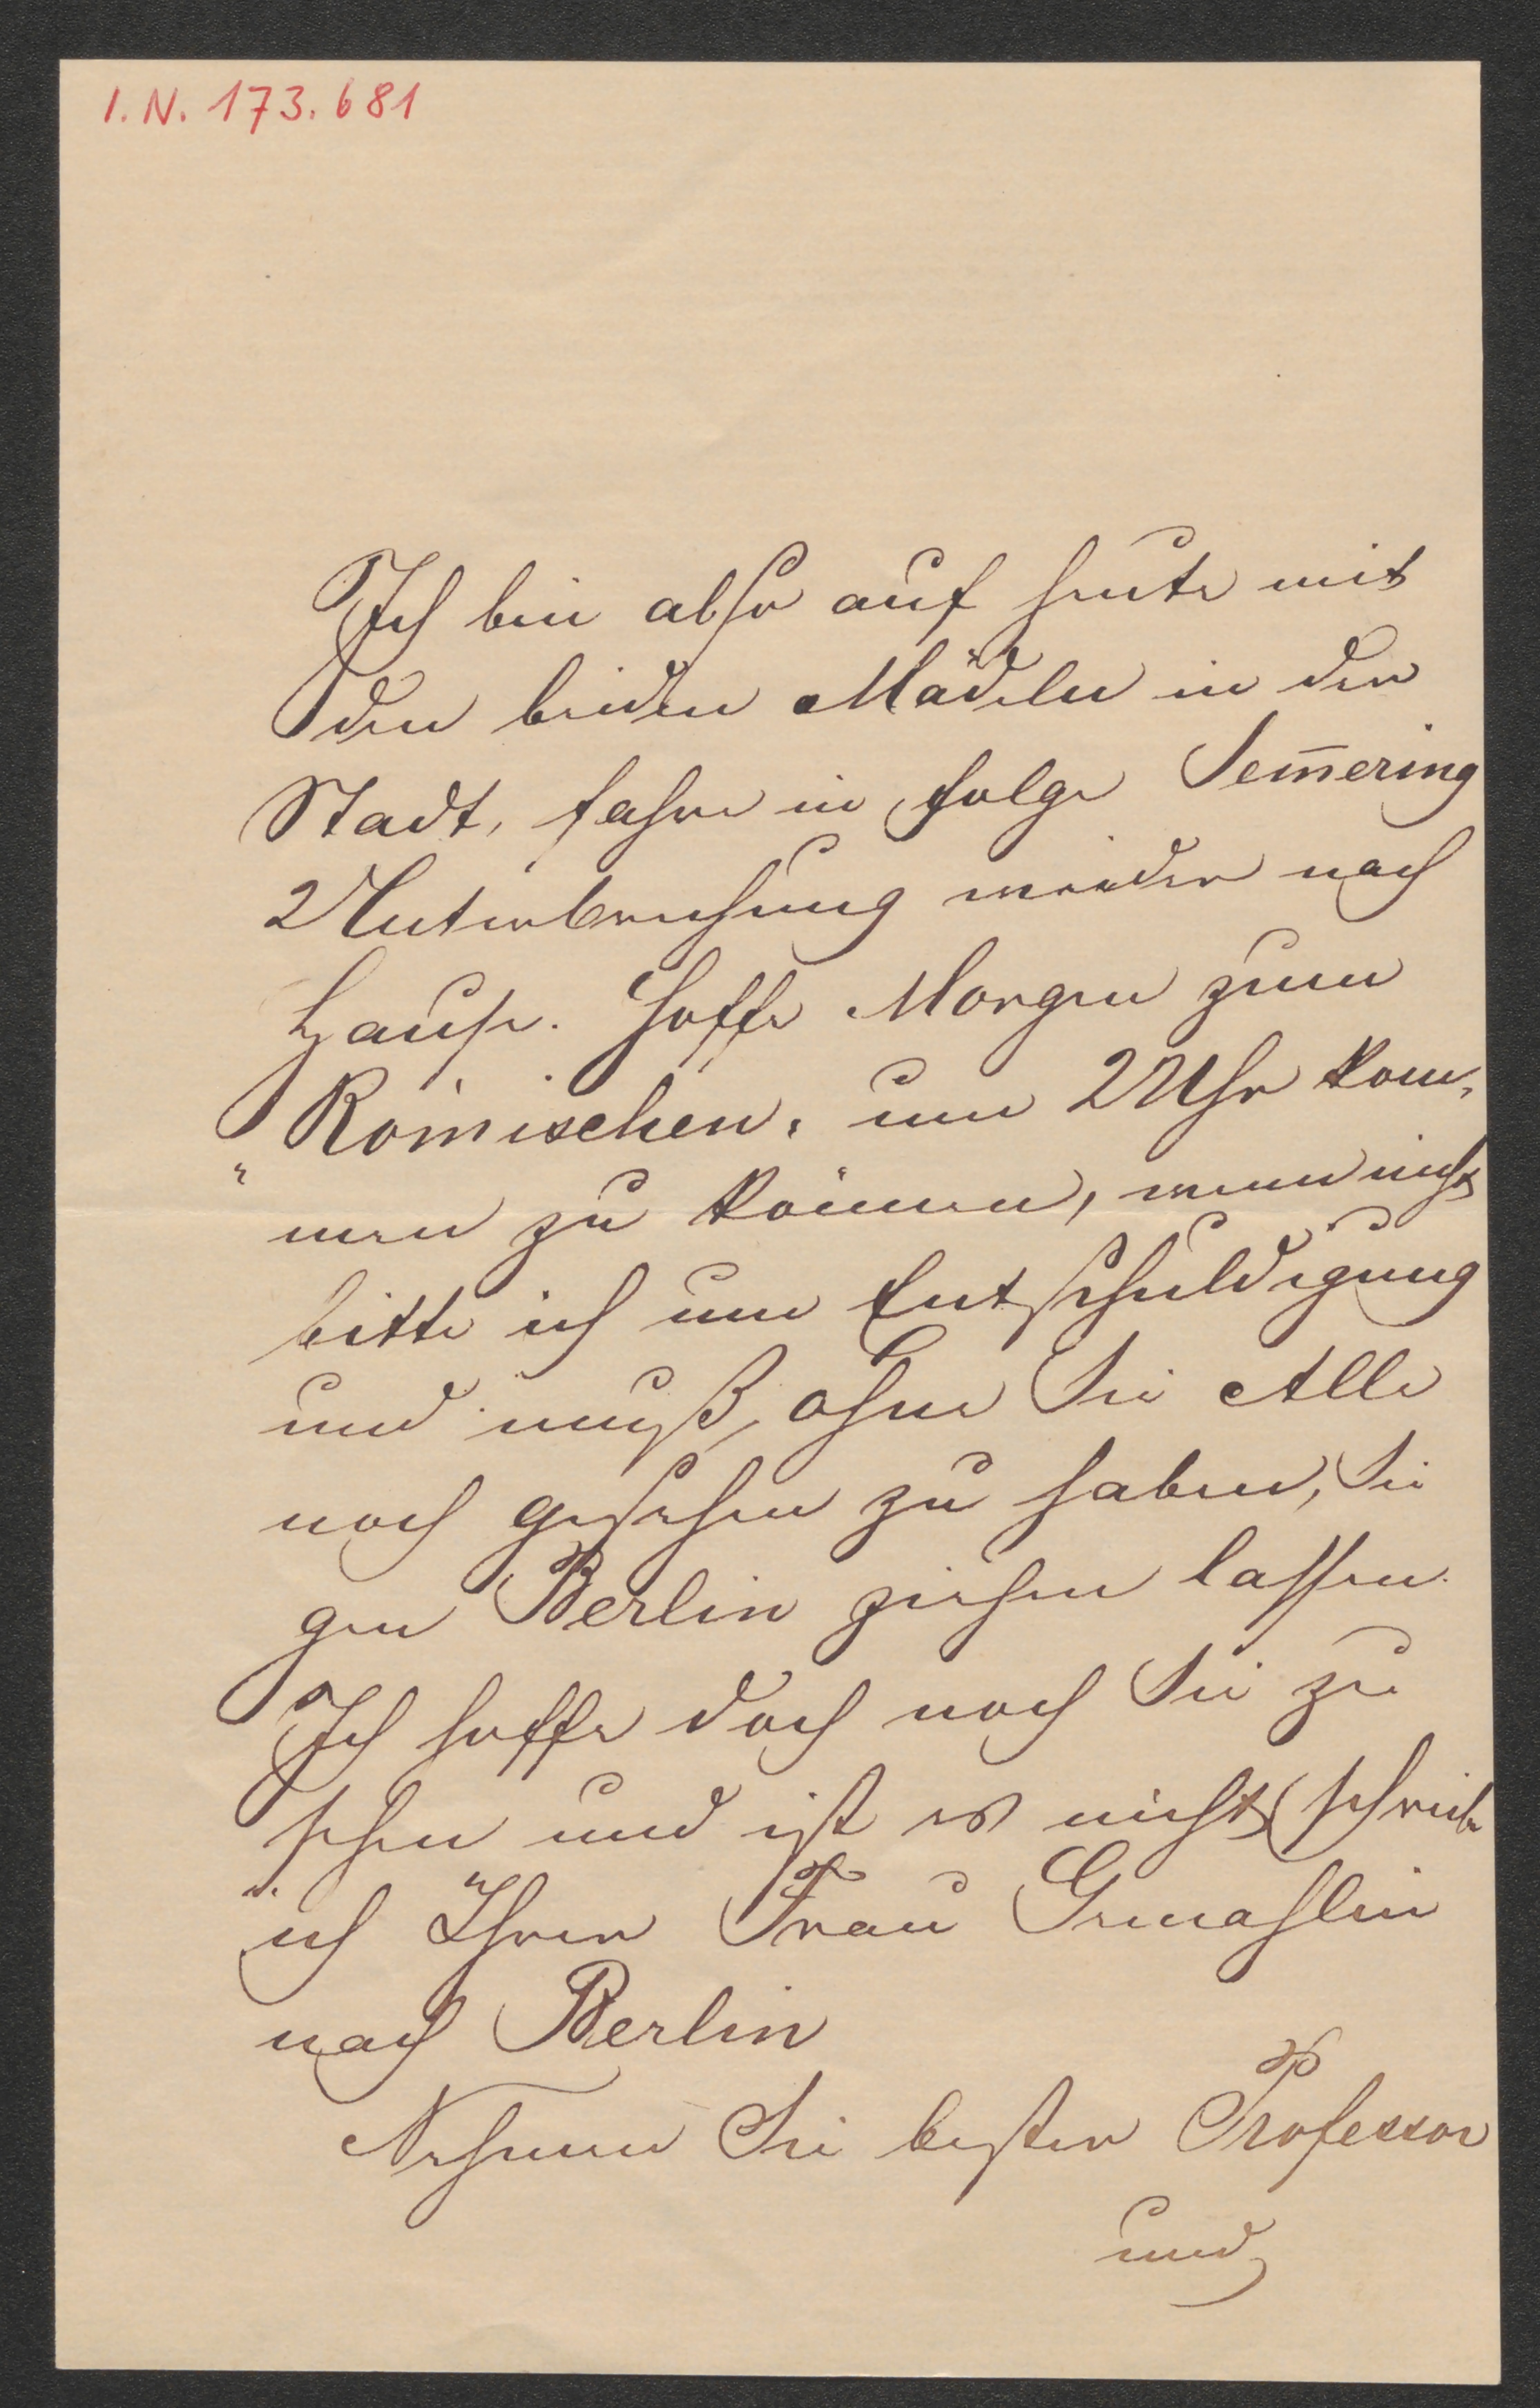 I. N. 173.681
Ich bin also auf heute mit
den beiden Mädeln in der
Stadt, fahre in folge Sem̄ering
Unterbrechung wieder nach
Hause. Hoffe Morgen zum
„Römischen" um 2 Uhr kom„
men zu können, wenn nicht
bitte ich um Entschuldigung
und muß, ohne Sie Alle
noch gesehen zu haben, Sie
gen Berlin ziehen lassen.
Ich hoffe doch noch Sie zu
sehen und ist es nicht, schreibe
ich Ihrer Frau Gemahlin
nach Berlin
Nehmen Sie bester Professor
und